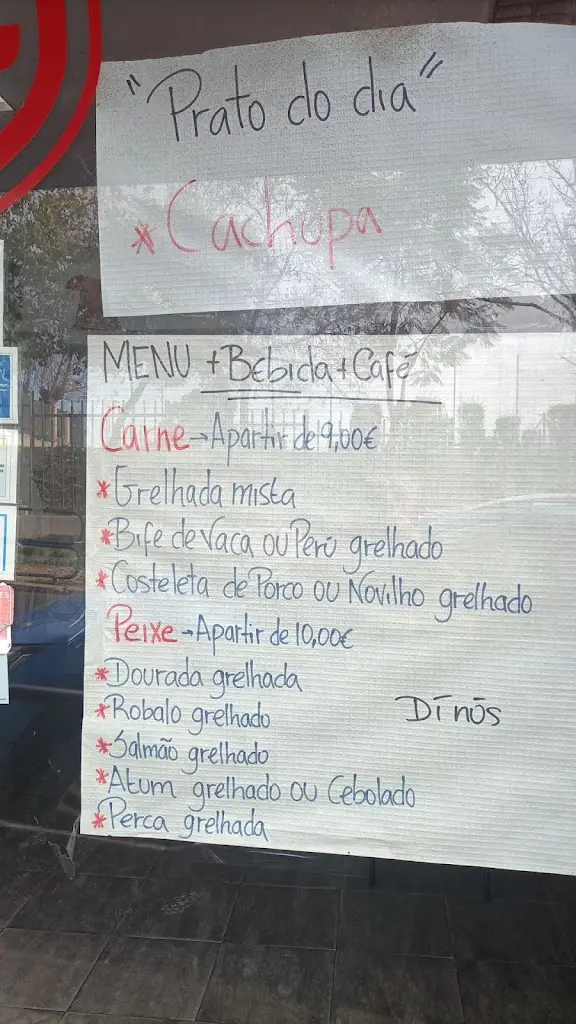 "Prato do dia"
* Cachupa
MENU + Bebida + Café
Carne → Apartir de 9,00€
* Grelhada mista
* Bife de Vaca ou Perú grelhado
* Costeleta de Porco ou Novilho grelhado
Peixe → Apartir de 10,00€
* Dourada grelhada
* Robalo grelhado
Dī nōs
* Salmão grelhado
* Atum grelhado ou Cebolado
* Perca grelhada